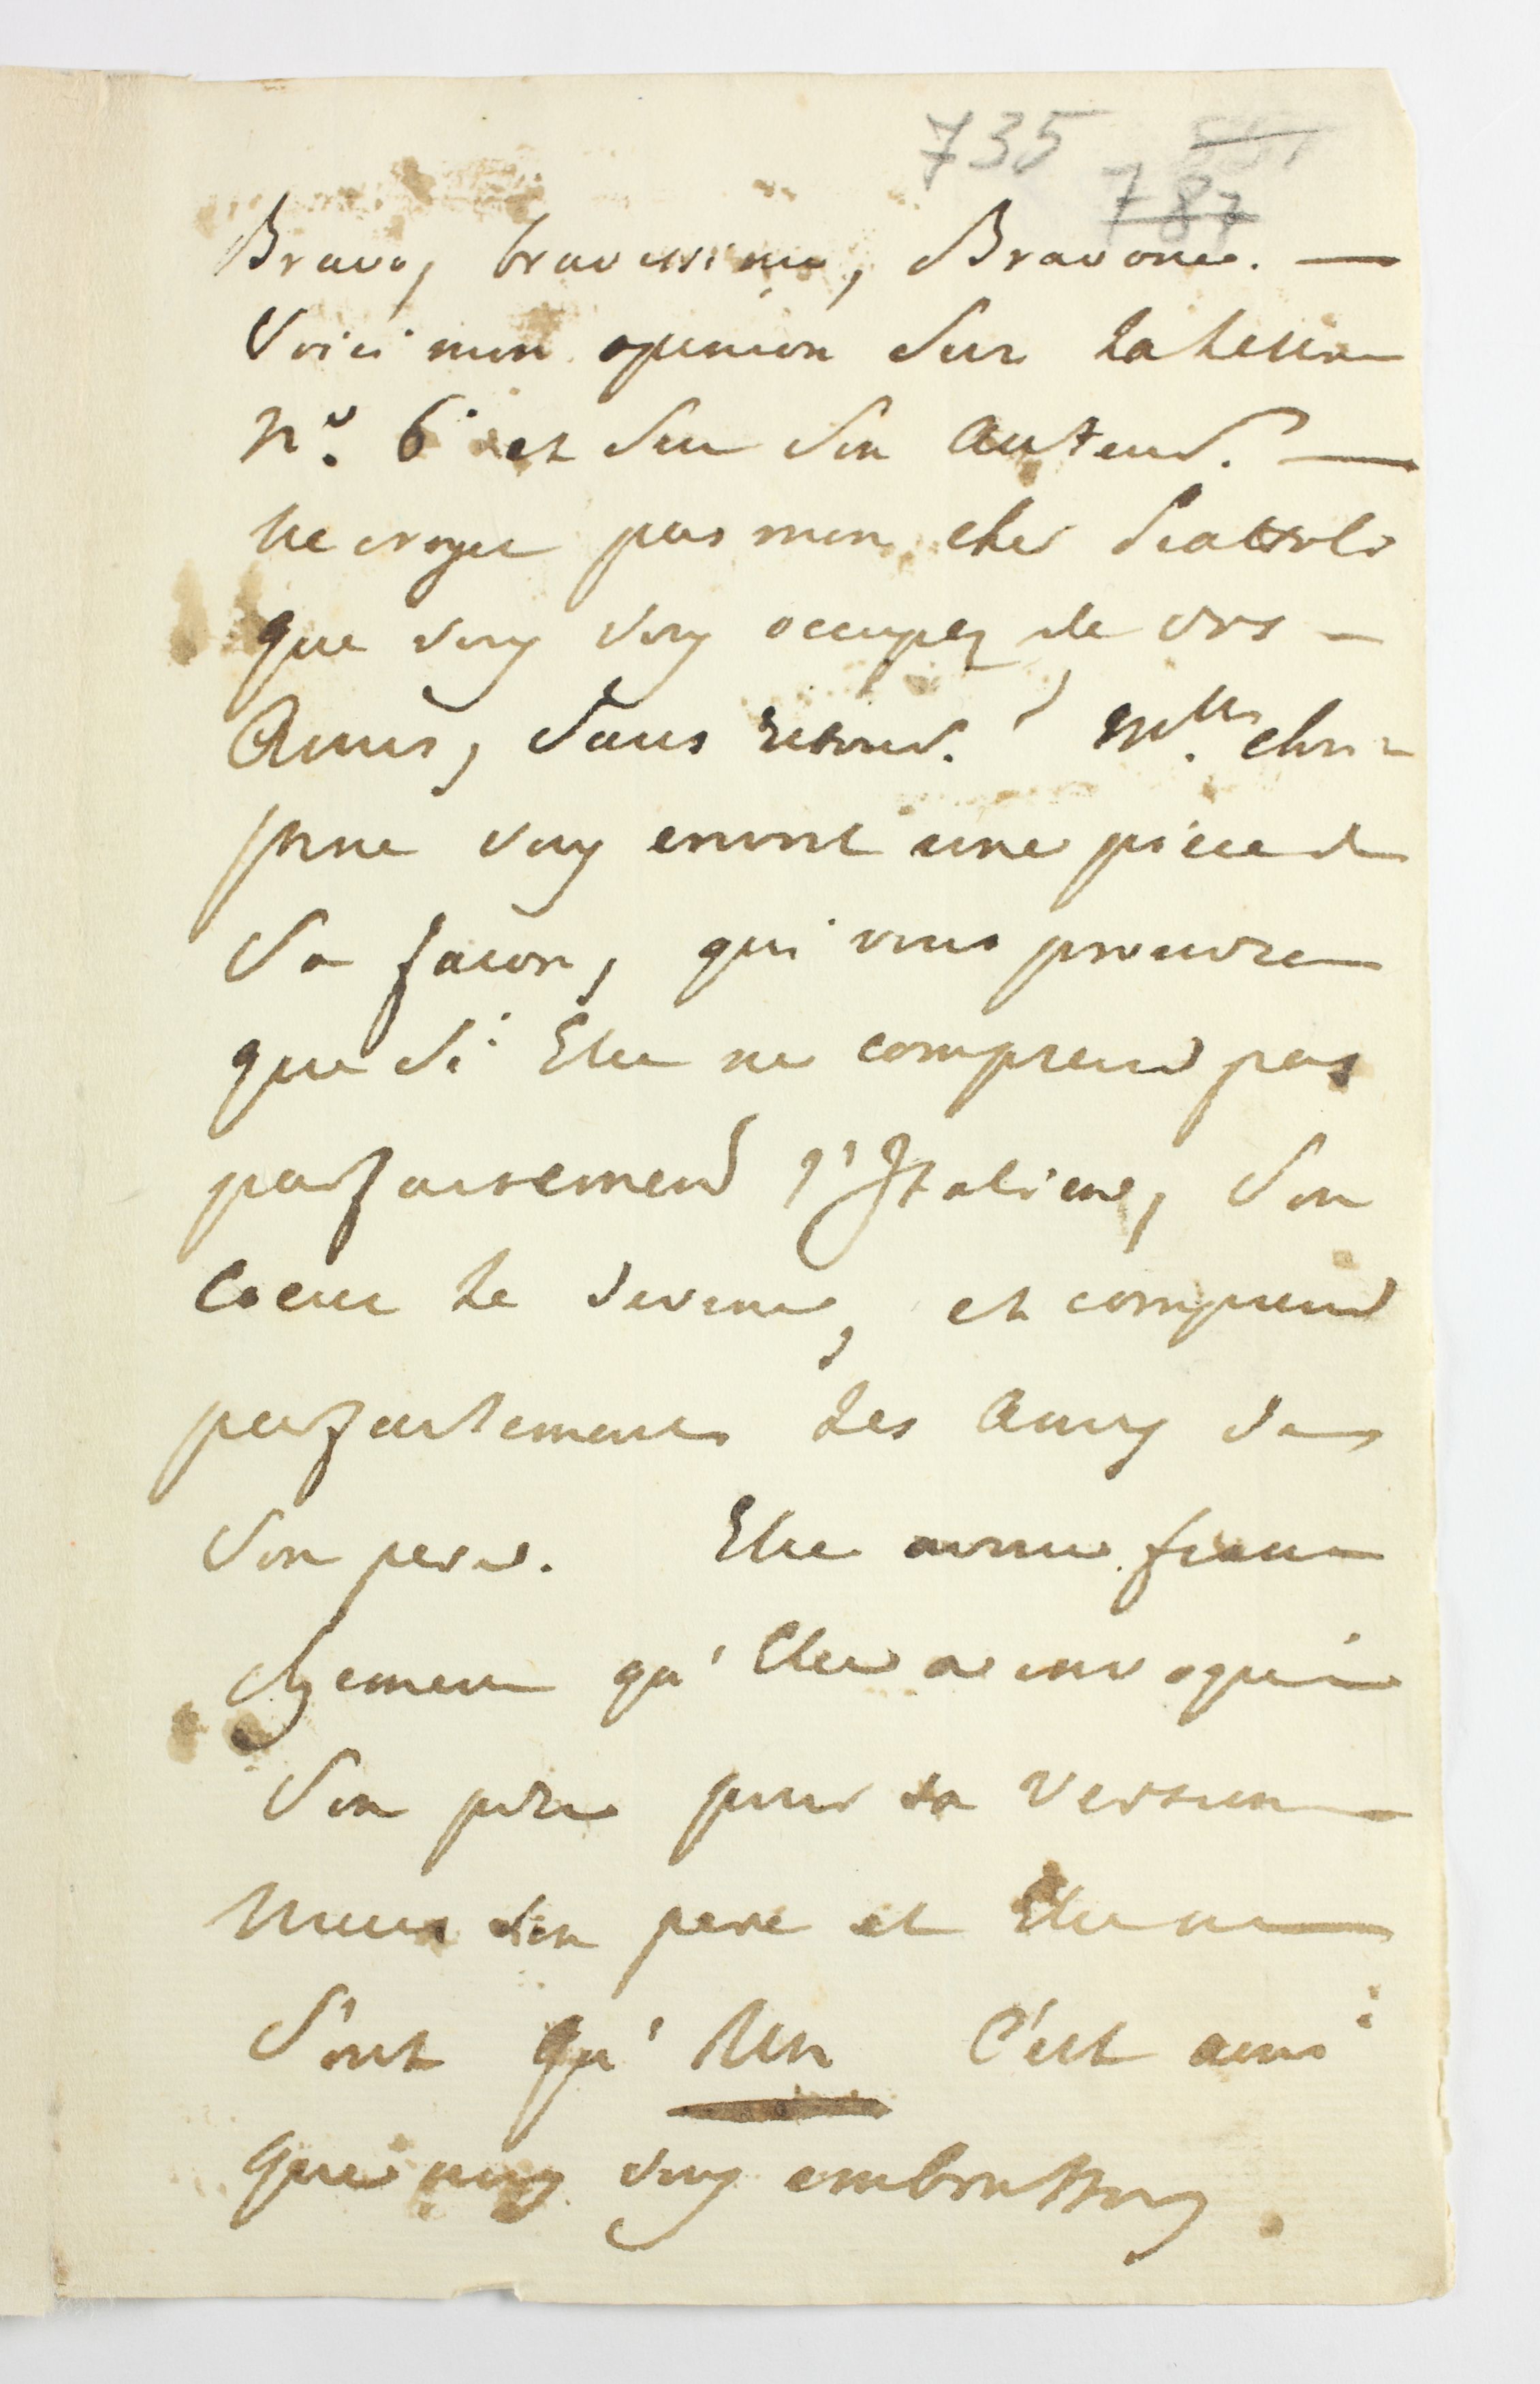 735 551
787
Bravo, bravissimo, Bravone. —
Voici mon opinion sur la lettre
N.º 6 et sur son auteur. —
Ne croyez pas mon cher Piattoli
que vous vous occupez de vos —
Amis, sans retour. Mlle. Chri-
stine vous envoit une pièce de
sa façon, qui vous prouvera
que si Elle ne comprend pas
parfaitement l'Italien, son
Coeur le devine, et comprend
parfaitement les amis de
son pere. Elle avoue fran
chement qu'Elle a un copié
son père pour sa version
Mais son pere et Elle ne
sont qu'Un C'est ainsi
que nous vous embrassons